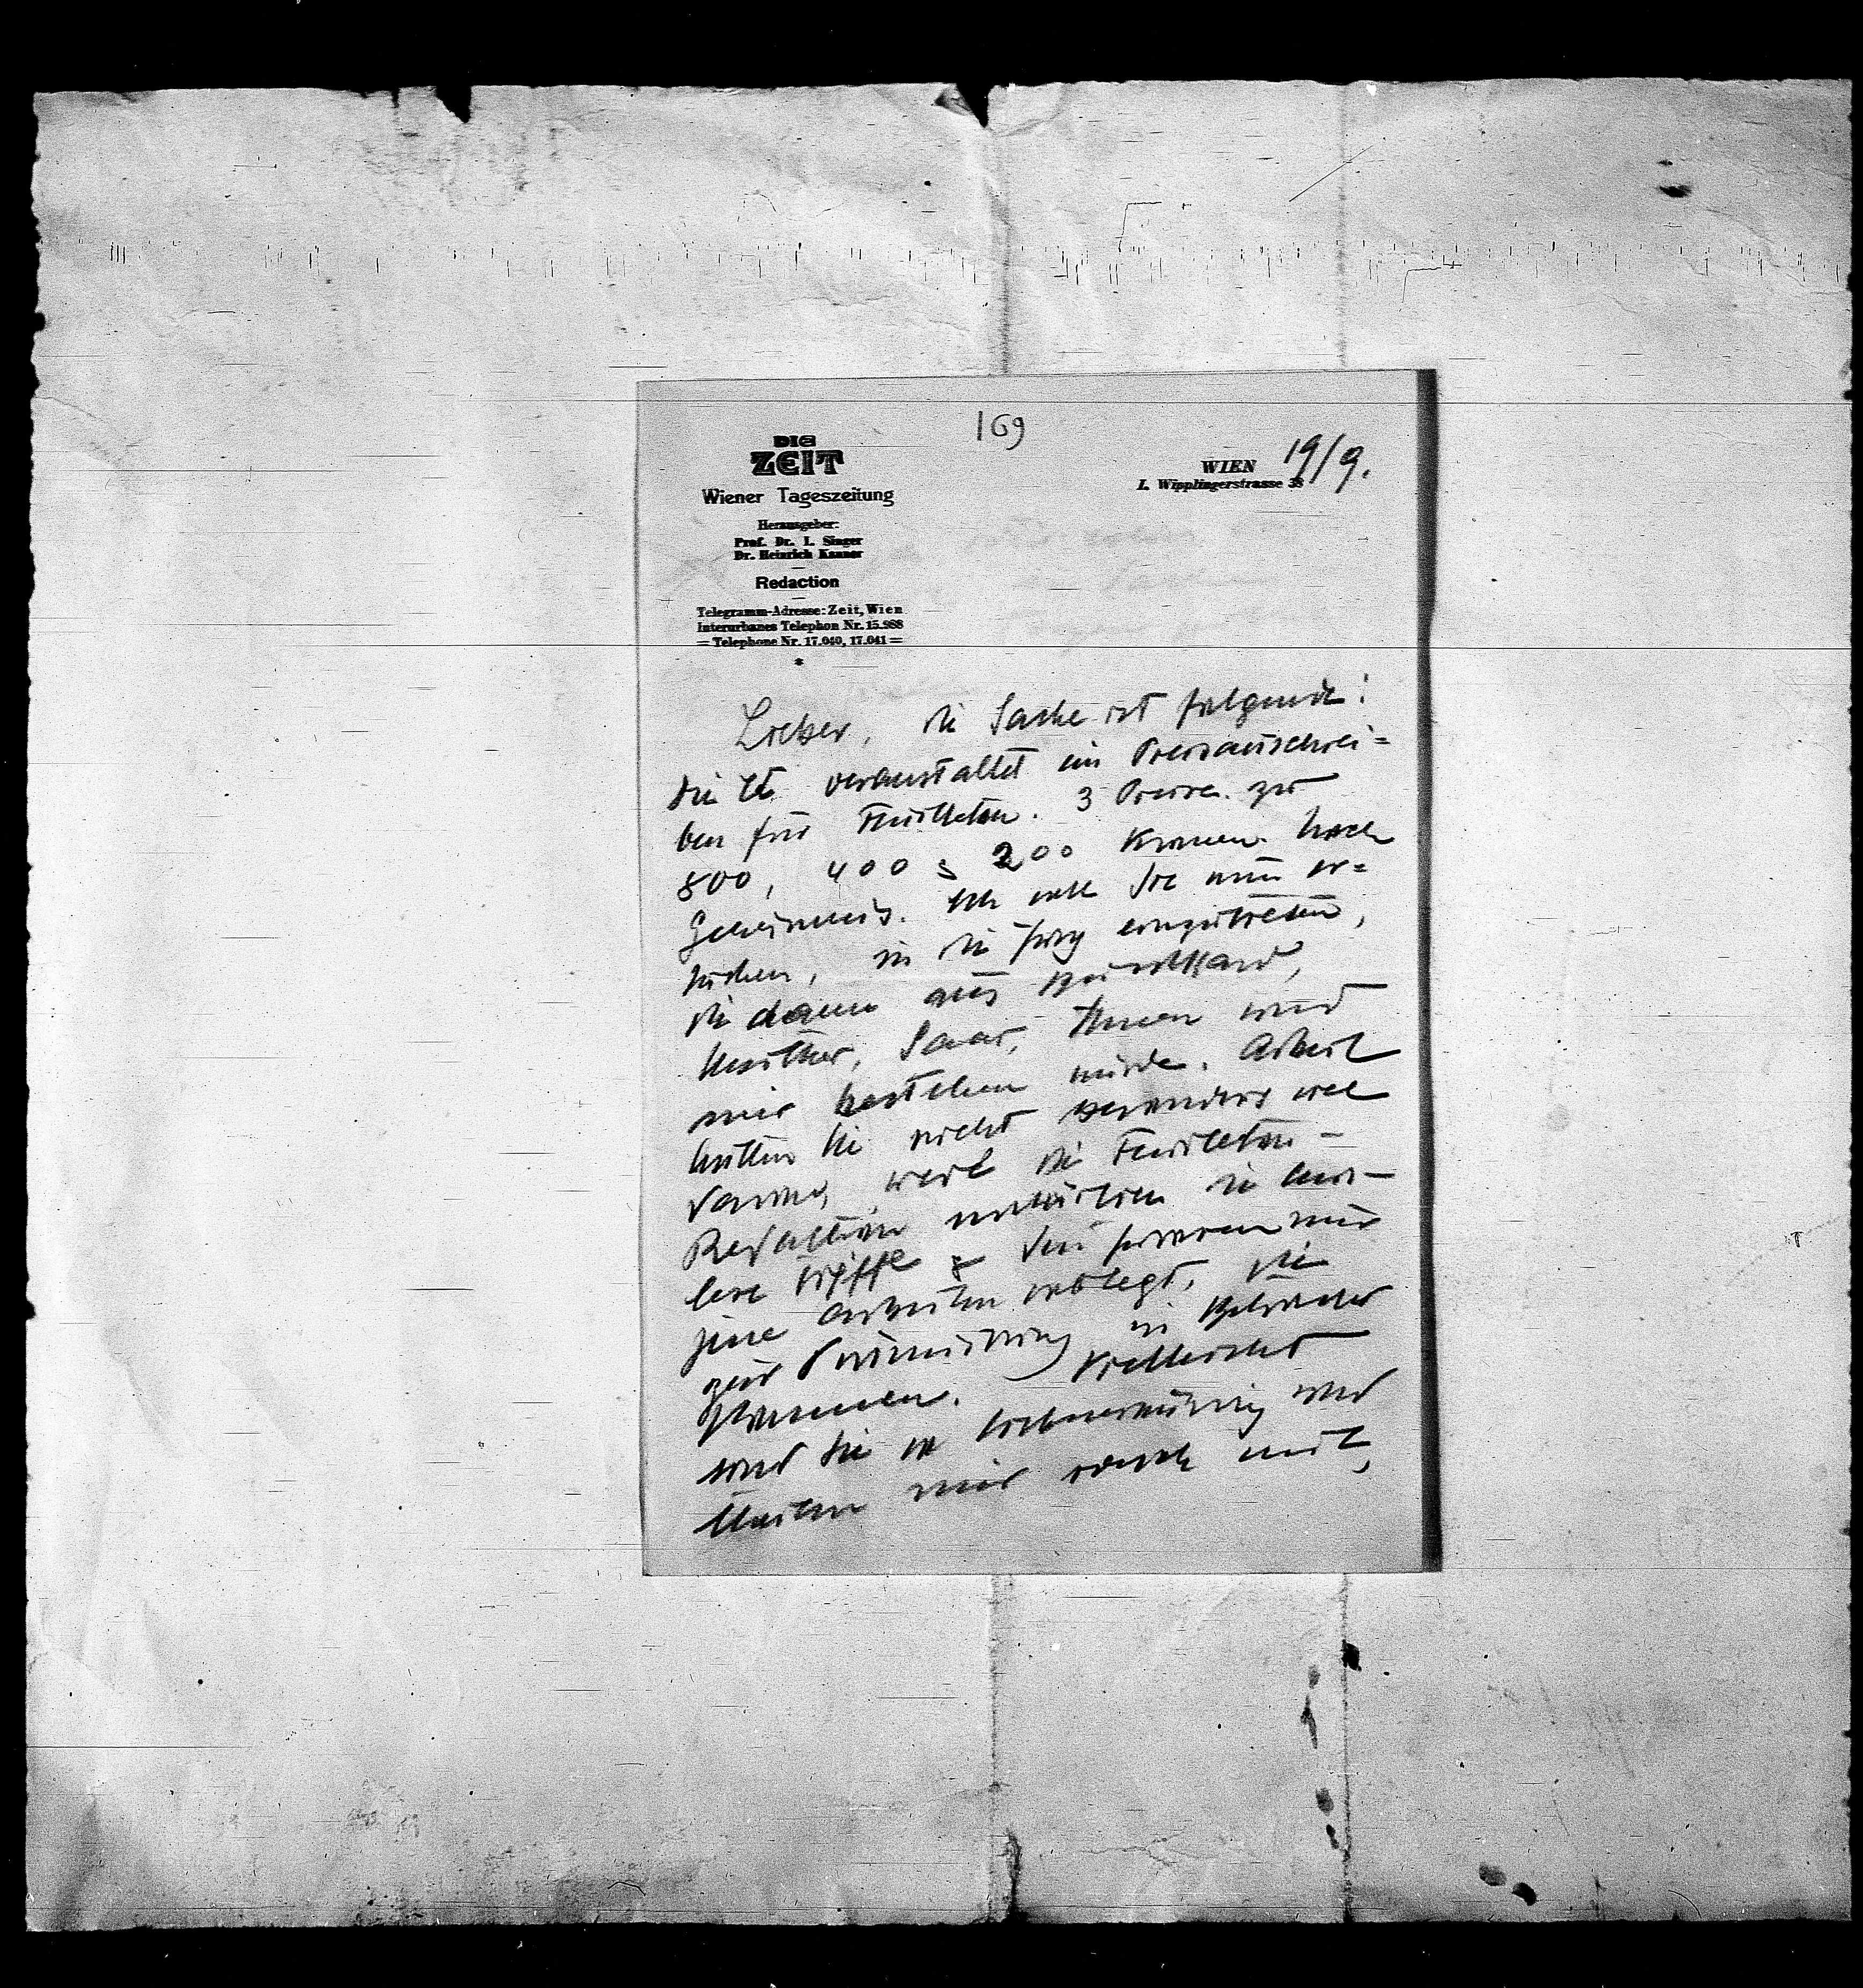 169
DIE
ZEIT
Wiener Tageszeitung
Herausgeber:
Prof. Dr. I. Singer
Dr. Heinrich Kanner
Redaction
Telegramm-Adresse: Zeit, Wien
Interurbanes Telephon Nr. 15.988
= Telephone Nr. 17.040, 17.041 =
*
WIEN 19/9.
I. Wipplingerstrasse 38
Lieber, die Sache ist folgende:
die Zt. veranstaltet ein Preisausschrei=
ben für Feuilleton. 3 Preise zu
800, 400 & 200 Kronen. Noch
Geheimnis. Ich soll Sie nun er=
suchen, in die Jury einzutreten,
die dann aus Burckhard,
Muther, Saar, Ihnen und
mir bestehen würde. Arbeit
hätten Sie nicht besonders viel
davon, weil die Feuilleton-
Redaktion natürlich die Aus-
lese trifft & den Juroren nur
jene Arbeiten vorlegt, die
zur Prämiirung in Betracht
kommen. Vielleicht
sind Sie so liebenswürdig und
theilen mir rasch mit,